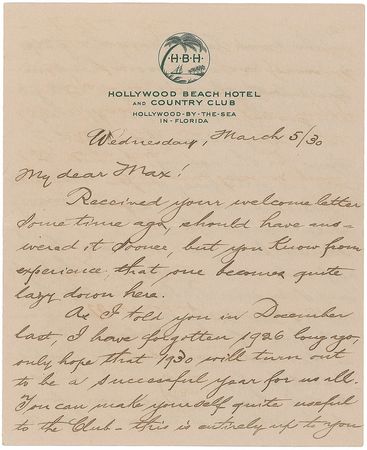 H·B·H
HOLLYWOOD BEACH HOTEL
AND COUNTRY CLUB
HOLLYWOOD-BY-THE-SEA
IN-FLORIDA
Wednesday, March 5/30
My dear Max!
Received your welcome letter
some time ago, should have ans-
wered it sooner, but you know from
experience, that one becomes quite
lazy down here.
As I told you in December
last, I have forgotten 1926 long ago,
only hope that 1930 will turn out
to be a successful year for us all.
You can make yourself quite useful
to the Club - this is entirely up to you